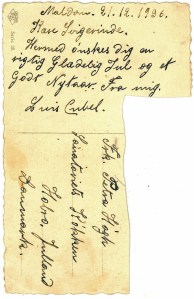 Maldon. 21.12.1926.
Kære Svigerinde.
Hermed ønskes dig en
rigtig Glædelig Jul og et
Godt Nytaar. Fra mig.
Luis Cubel.
Frk. Petra Høgh
Sanatoriets Køkken
Hobro, Jylland
Danemark.